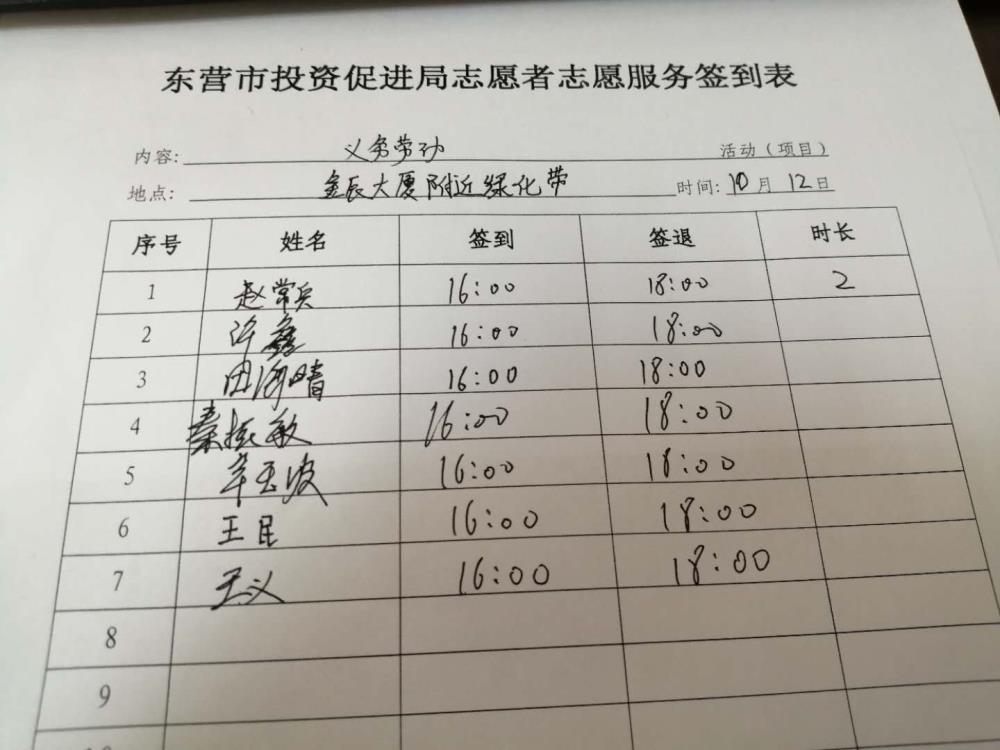 东营市投资促进局志愿者志愿服务签到表
内容: 义务劳动 活动（项目）
地点: 金辰大厦附近绿化带 时间: 10月12日
序号 姓名 签到 签退 时长
1 赵常兵 16:00 18:00 2
2 许鑫 16:00 18:00
3 田海晴 16:00 18:00
4 秦振敏 16:00 18:00
5 辛玉波 16:00 18:00
6 王民 16:00 18:00
7 王义 16:00 18:00
8
9